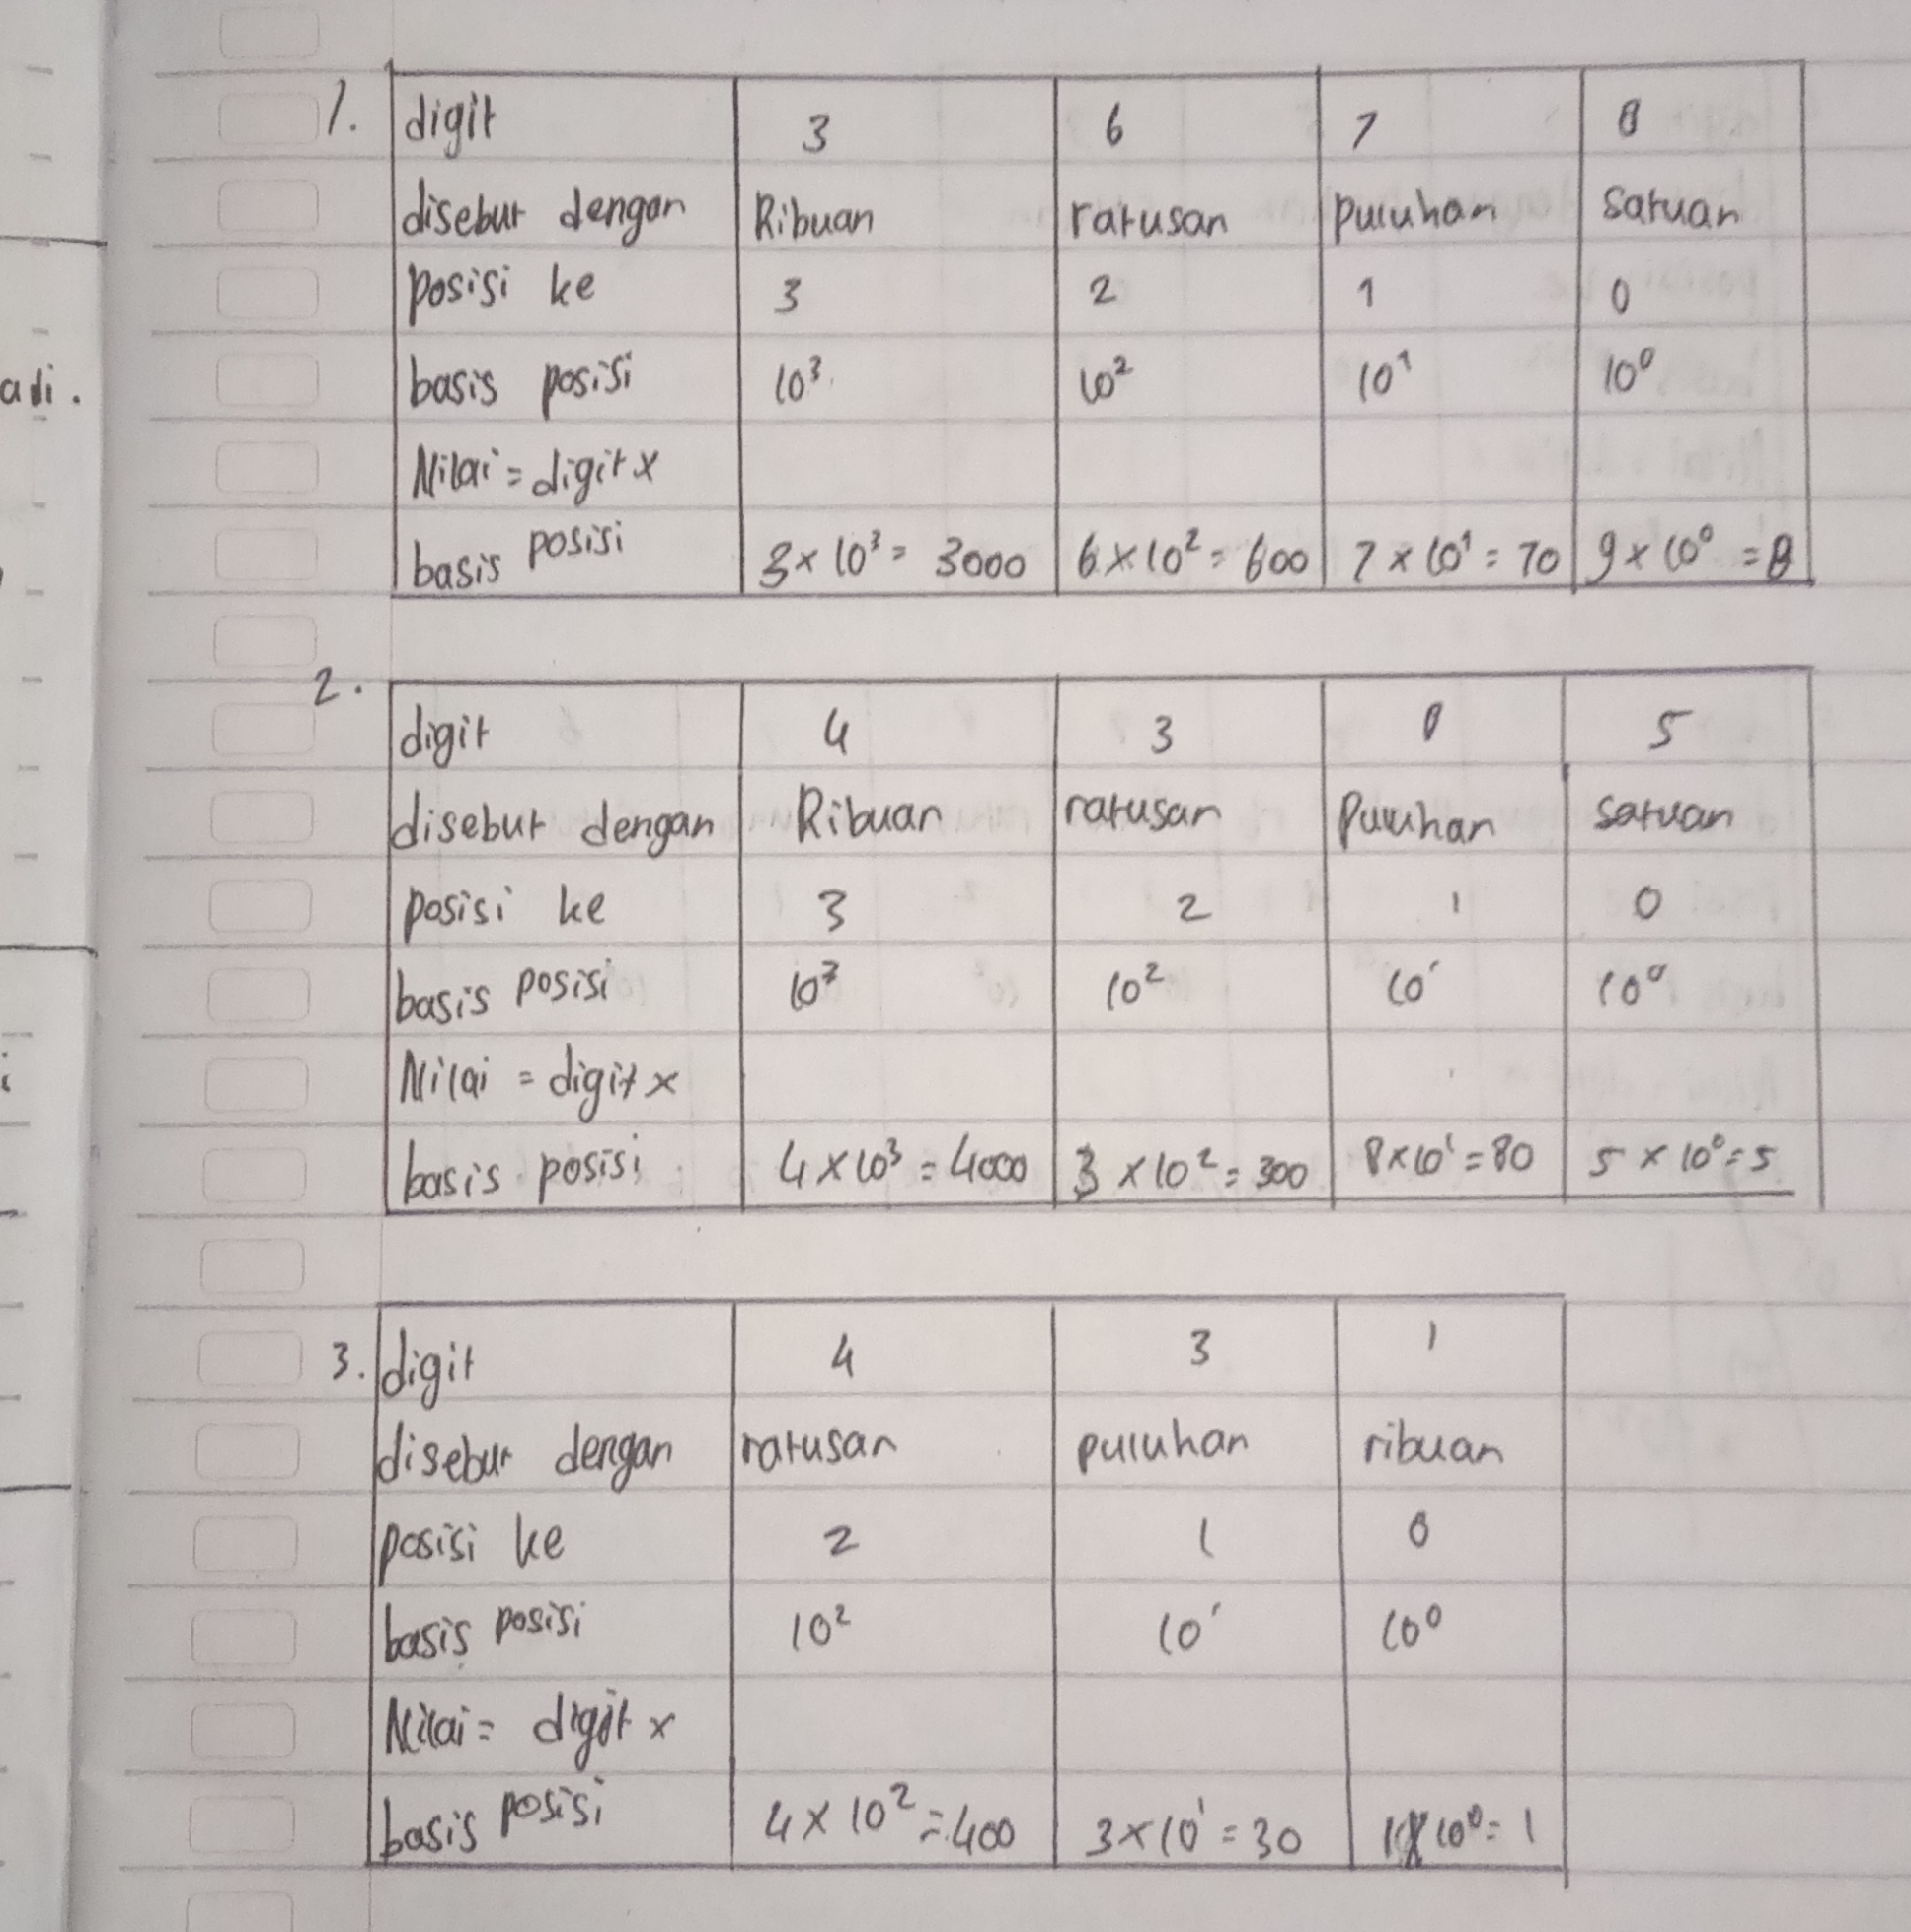 adi.
1. digit 3 6 7 8
disebut dengan Ribuan ratusan puluhan Satuan
posisi ke 3 2 1 0
basis posisi 10³ 10² 10¹ 10⁰
Nilai = digit x
basis posisi 3 x 10³ = 3000 6 x 10² = 600 7 x 10¹ = 70 9 x 10⁰ = 8
2. digit 4 3 8 5
disebut dengan Ribuan ratusan Puluhan Satuan
posisi ke 3 2 1 0
basis posisi 10³ 10² 10¹ 10⁰
Nilai = digit x
basis posisi 4 x 10³ = 4000 3 x 10² = 300 8 x 10¹ = 80 5 x 10⁰ = 5
3. digit 4 3 1
disebut dengan ratusan puluhan ribuan
posisi ke 2 1 0
basis posisi 10² 10¹ 10⁰
Nilai = digit x
basis posisi 4 x 10² = 400 3 x 10¹ = 30 1 x 10⁰ = 1